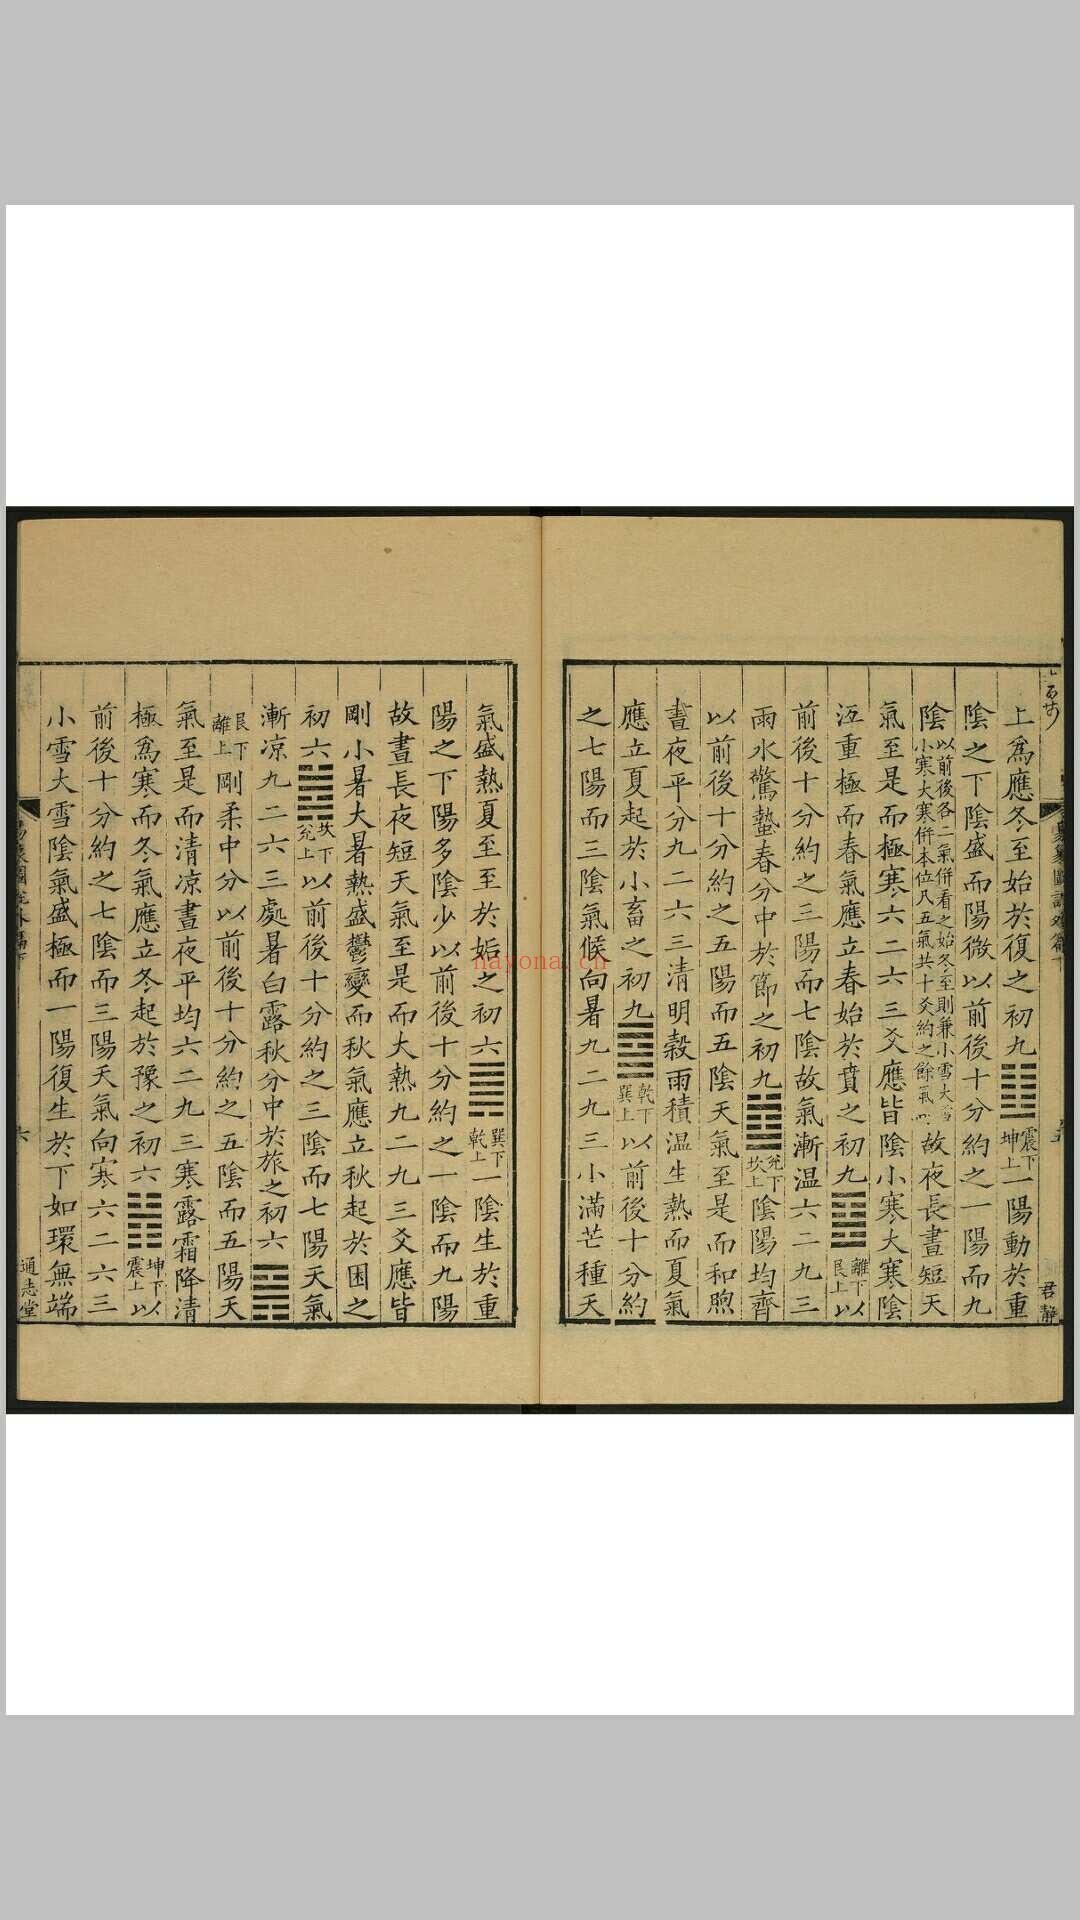 上爲應冬至始於復之初九震下坤上一陽動於重
陰之下陰盛而陽微以前後十分約之一陽而九
陰以前後各二氣併看之始冬至則兼小雪大雪小寒大寒併本位凡五氣共十爻約之餘氣故夜長晝短天
氣至是而極寒六二六三爻應皆陰小寒大寒陰
沍重極而春氣應立春始於賁之初九離下艮上以
前後十分約之三陽而七陰故氣漸温六二九三
雨水驚蟄春分中於節之初九兌下坎上陰陽均齊
以前後十分約之五陽而五陰天氣至是而和煦
晝夜平分九二六三清明穀雨積温生熱而夏氣
應立夏起於小畜之初九乾下巽上以前後十分約
之七陽而三陰氣候向暑九二九三小滿芒種天
氣盛熱夏至至於姤之初六巽下乾上一陰生於重
陽之下陽多陰少以前後十分約之一陰而九陽
故晝長夜短天氣至是而大熱九二九三爻應皆
剛小暑大暑熱盛鬱變而秋氣應立秋起於困之
初六坎下兌上以前後十分約之三陰而七陽天氣
漸凉九二六三處暑白露秋分中於旅之初六
艮下離上剛柔中分以前後十分約之五陰而五陽天
氣至是而清凉晝夜平均六二九三寒露霜降清
極爲寒而冬氣應立冬起於豫之初六坤下震上以
前後十分約之七陰而三陽天氣向寒六二六三
小雪大雪陰氣盛極而一陽復生於下如環無端
君靜
六
通志堂
nayona.cn